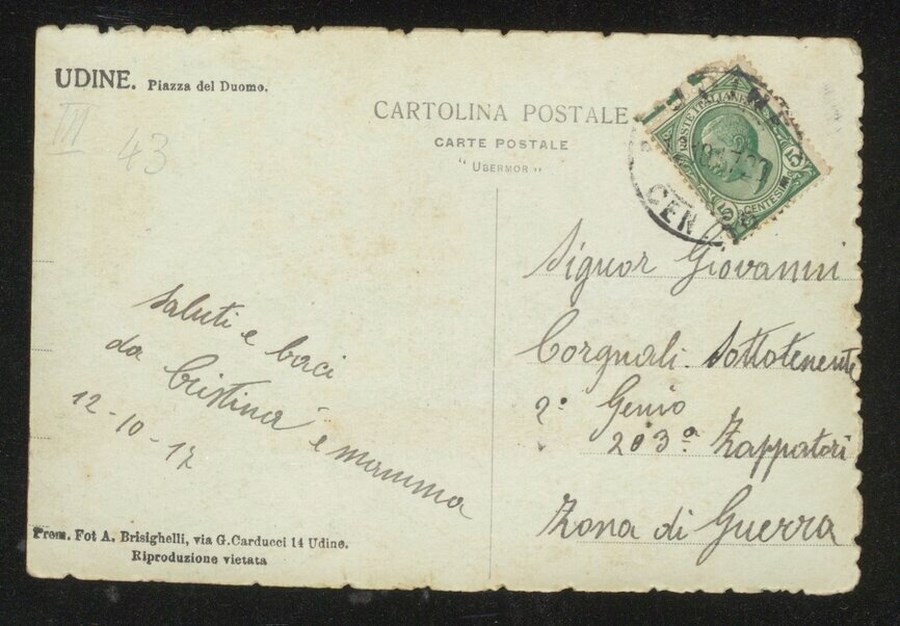 UDINE. Piazza del Duomo.
III
43
CARTOLINA POSTALE
CARTE POSTALE
"UBERMOR"
POSTE ITALIANE
CENTESIMI
5
5
CEN
Saluti e baci
da Cristina e mamma
12-10-17
Signor Giovanni
Corgnali. Sottotenente
2° Genio
203ª Zappatori
Zona di Guerra
Prem. Fot A. Brisighelli, via G.Carducci 14 Udine.
Riproduzione vietata